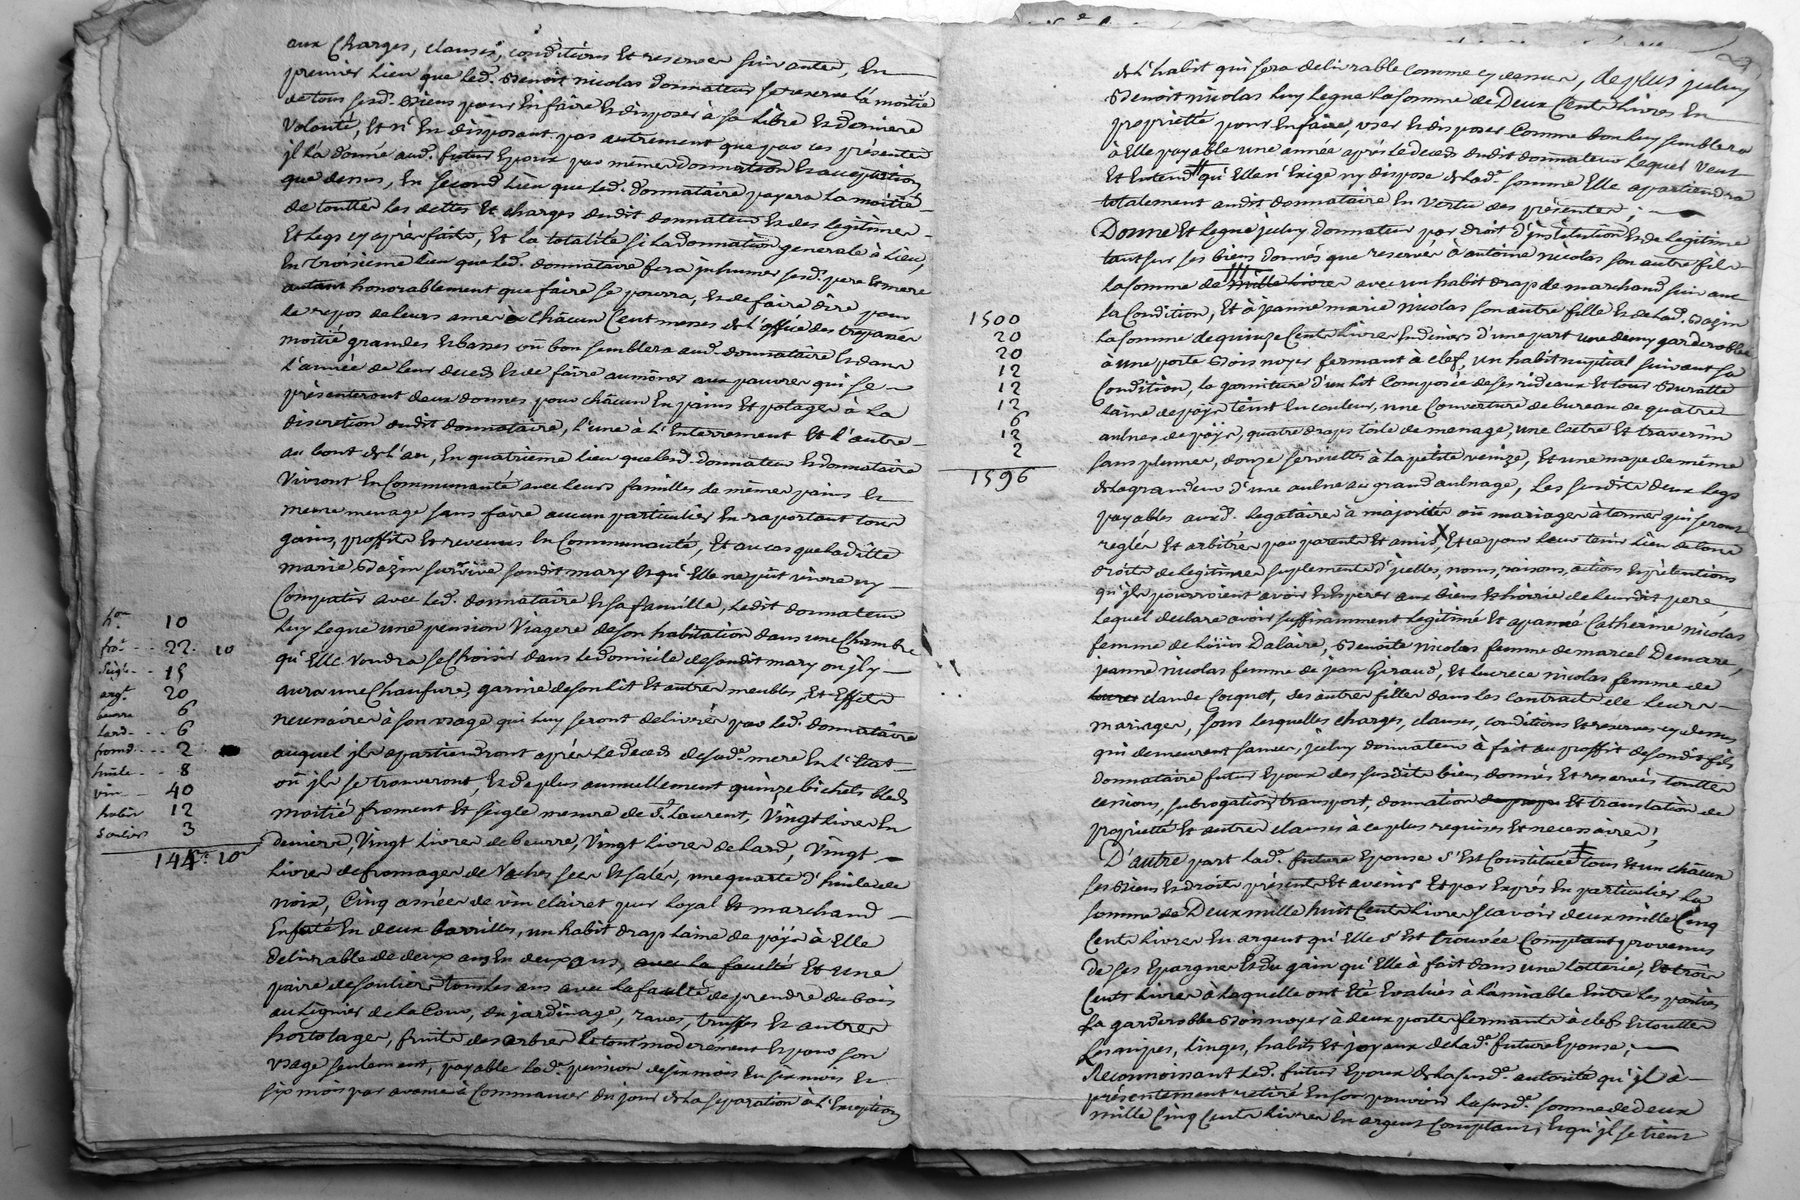 aux Charges, clauses, conditions Et reserves suivantes, En
premier Lieu que Led. Benoit nicolas donnateur se reserve La moitié
de tous sesd. Biens pour En faire Et disposer à sa Libre Et derniere
Volonté, Et n'En disposant pas autrement que par ces presentes
jl La donné aud. futur Epoux par même donnation Et acceptation
que dessus, En second Lieu que Led. donnataire payera La moitié
de touttes Les dettes Et charges dudit donnateur Et des legitimes
Et Legs cy après faits, Et La totalité si La donnation generale à Lieu,
En troisieme Lieu que Led. donnataire fera jnhumer sesd. pere Et mere
autant honorablement que faire se pourra, Et de faire dire pour
Le repos de Leurs ames à Châcun Cent messes de L'office des trepassés
moitié grandes Et basses où bon semblera aud. donnataire Et dans
L'année de Leur deceds Et de faire aumônes aux pauvres qui se
présenteront deux donnes pour châcun En pains Et potages à La
discretion dudit donnataire, L'une à L'Enterrement Et L'autre
au bout de L'an, En quatrieme Lieu que Lesd. donnateur Et donnataire
Vivront En Communauté avec Leurs familles de mêmes pains Et
même menage sans faire aucun particulier En raportant tous
gains, proffits Et revenus En Communauté, Et au cas que Laditte
marie Bazin survive sondit mary Et qu'Elle ne pût vivre ny
Compatir avec Led. donnataire Et sa famille, Ledit donnateur
Luy Legue une pension Viagere de son habitation dans une Chambre
qu'Elle Voudra se Choisir dans Le domicile de sondit mary ou jl y
aura une Chaufure, garnie de son Lit Et autres meubles, Et Effets
necessaires à son usage qui Luy seront delivrés par Led. donnataire
auquel jls apartiendront après Le deceds de sad. mere En L'Etat
où jls se trouveront, Et de plus annuellement quinze bichets bled
moitié froment Et seigle mesure de St. Laurent, Vingt Livres En
deniers, Vingt Livres de beurre, Vingt Livres de Lard, Vingt
Livres de fromages de Vaches secs Et salés, une quarte d'huile de
noix, Cinq asnées de vin clairet pur Loyal Et marchand
Enfuté En deux barrilles, un habit drap Laine de païs à Elle
delivrable de deux ans En deux ans, avec La faculté Et une
paire de souliers tous Les ans avec La faculté de prendre du bois
au Lignier de La Cour, du jardinage, raves, truffes Et autres
hortolages, fruits des arbres Le tout moderément Et pour son
usage seulement, payable Lad. pension de six mois En six mois Et
six mois par avance à Commencer du jour de La separation à L'Exception
h.on 10
fro.t 22: 10
seigle 15
argt. 20
beurre 6
Lard 6
fromd. 2
huile 8
vin 40
habit 12
Soulier 3
144: 10
de L'habit qui sera delivrable comme cy dessus, de plus jceluy
Benoit nicolas Luy Legue La somme de Deux Cents Livres En
proprieté pour En faire, user Et disposer Comme bon Luy semblera
à Elle payable une année après Le deceds dudit donnateur Lequel Veut
Et Entend qu'Elle n'Exige ny dispose de Lad. somme Elle apartiendra
totalement audit donnataire En Vertu des présentes;
Donne Et Legue jceluy donnateur par droit d'jnstitution Et de Legitime
tant sur ses biens donnés que reservés à antoine nicolas son autre fils
La somme de mille Livres avec un habit drap de marchand suivant
sa Condition, Et à jeanne marie nicolas son autre fille Et de Lad. Bazin
La somme de quinze Cents Livres En deniers d'une part une demy garderobbe
à une porte Bois noyer fermant à clef, un habit nuptial suivant sa
Condition, La garniture d'un Lit Composée de ses rideaux Et tour Buratte
Laine de païs teint En couleur, une Couverture de bureau de quatre
aulnes de païs, quatre draps toile de menage, une Coëtre Et traversin
sans plumes, douze serviettes à La petite venize, Et une nape de même
de La grandeur d'une aulne au grand aulnage, Les susdits deux Legs
payables auxd. Legataires à majorités où mariages à termes qui seront
reglés Et arbitrés par parents Et amis, Et ce pour Leur tenir Lieu de tous
droits de Legitimes suplements d'jcelles, noms, raisons, actions Et prétentions
qu'jls pourroient avoir Et Esperer aux biens Et hoirie de Leurdit pere,
Lequel declare avoir suffisamment Legitimé Et apanné Catherine nicolas
femme de Loüis Dalaire, Benoite nicolas femme de marcel Demare,
jeanne nicolas femme de jean Giraud, Et Lucrece nicolas femme de
claude Cocquet, ses autres filles dans Les Contrats de Leurs
mariages, sous Lesquelles charges, clauses, conditions Et reserves cy dessus
qui demeurent sauves, jceluy donnateur à fait au proffit de sondit fils
donnataire futur Epoux des susdits biens donnés Et reservés touttes
cessions, subrogation, transport, donnation de propr. Et translation de
proprieté Et autres clauses à ce plus requises Et necessaires;
D'autre part Lad. future Epouse s'Est Constituée tous Et un châcun
ses Biens Et droits présents Et avenirs Et par Exprés En particulier La
somme de Deux mille huit Cents Livres scavoir deux mille Cinq
Cents Livres En argent qu'Elle s'Est trouvée Comptant provenus
de ses Epargnes Et du gain qu'Elle à fait dans une Lotterie, Et trois
Cents Livres à Laquelle ont Eté Evalués à L'amiable Entre Les parties
La garderobbe Bois noyer à deux portes fermante à clefs Et touttes
Les nipes, Linges, habits Et joyaux de Lad. future Epouse;
Reconnoissant Led. futur Epoux de La susd. autorité qu'jl à
présentement retiré En son pouvoir La susd. somme de deux
mille Cinq Cents Livres En argent Comptant, Et qu'jl se tient
1500
20
20
12
12
12
6
12
2
1596